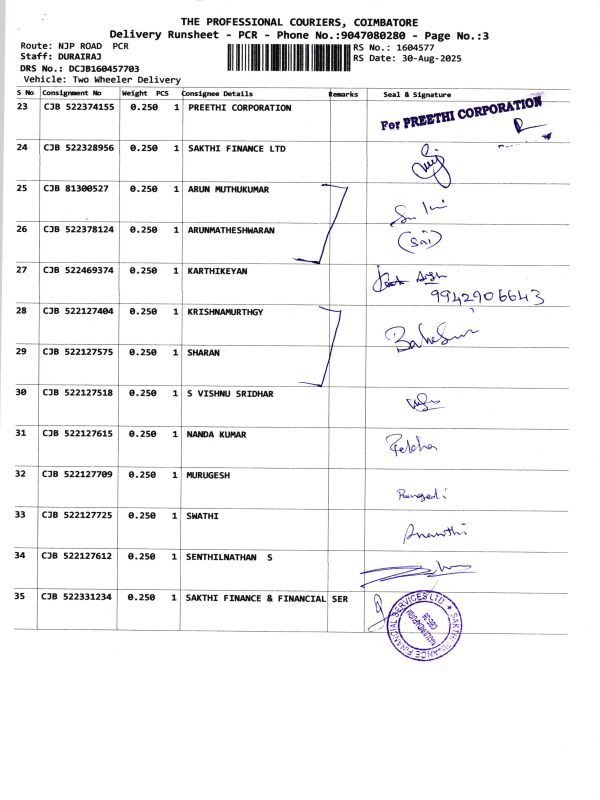 THE PROFESSIONAL COURIERS, COIMBATORE
Delivery Runsheet - PCR - Phone No.:9047080280 - Page No.:3
Route: NJP ROAD PCR RS No.: 1604577
Staff: DURAIRAJ RS Date: 30-Aug-2025
DRS No.: DCJB160457703
Vehicle: Two Wheeler Delivery
S No Consignment No Weight PCS Consignee Details Remarks Seal & Signature
23 CJB 522374155 0.250 1 PREETHI CORPORATION For PREETHI CORPORATION
24 CJB 522328956 0.250 1 SAKTHI FINANCE LTD
25 CJB 81300527 0.250 1 ARUN MUTHUKUMAR
26 CJB 522378124 0.250 1 ARUNMATHESHWARAN (Sai)
27 CJB 522469374 0.250 1 KARTHIKEYAN
9942906643
28 CJB 522127404 0.250 1 KRISHNAMURTHGY
29 CJB 522127575 0.250 1 SHARAN
30 CJB 522127518 0.250 1 S VISHNU SRIDHAR
31 CJB 522127615 0.250 1 NANDA KUMAR
32 CJB 522127709 0.250 1 MURUGESH
33 CJB 522127725 0.250 1 SWATHI Ananthi
34 CJB 522127612 0.250 1 SENTHILNATHAN S
35 CJB 522331234 0.250 1 SAKTHI FINANCE & FINANCIAL SER
SAKTHI FINANCE FINANCIAL SERVICES LTD